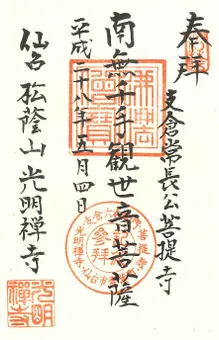 奉拝
支倉常長公菩提寺
南無千手観世音菩薩
平成二十八年五月四日
仙台 松蔭山 光明禅寺
佛法僧寶
参拝
光明禅寺